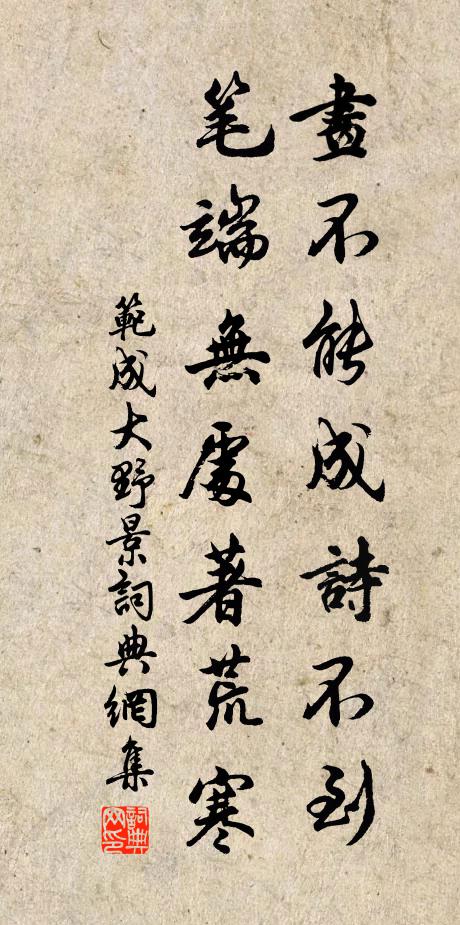 畫不能成詩不到
笔端無處著荒寒
範成大野景詞典網集
詞典网印